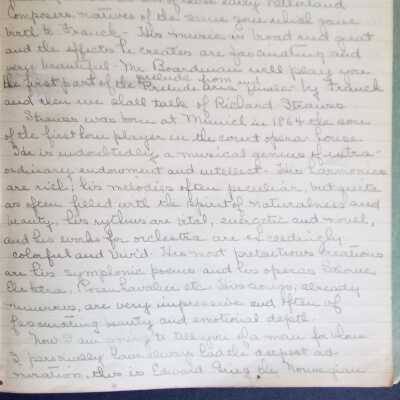 of these early Netherland
Composers natives of the same general zone
birth to Franck - His music is broad and great
and the effects he creates are fascinating and
very beautiful - Mr. Boardman will play you
the first part of the Prelude Aria Finale by Franck
prelude from
and then we shall talk of Richard Strauss
Strauss was born at Munich in 1864 the son
of the first horn player in the court opera house
He is undoubtedly a musical genius of extra-
ordinary endowment and intellect - His harmonies
are rich; his melodies often peculiar, but quite
as often filled with the spirit of naturalness and
beauty, his rythms are vital, energetic and novel,
and his works for orchestra are exceedingly
colorful and vivid. His most pretentious creations
are his symphonic poems and his operas Salome
Elektra, Rosenkavalier etc. His songs, already
numerous, are very impressive and often of
fascinating beauty and emotional depth.
Now I am going to tell you of a man for whom
I personally have always had the deepest ad-
miration, this is Edward Grieg the Norwegian